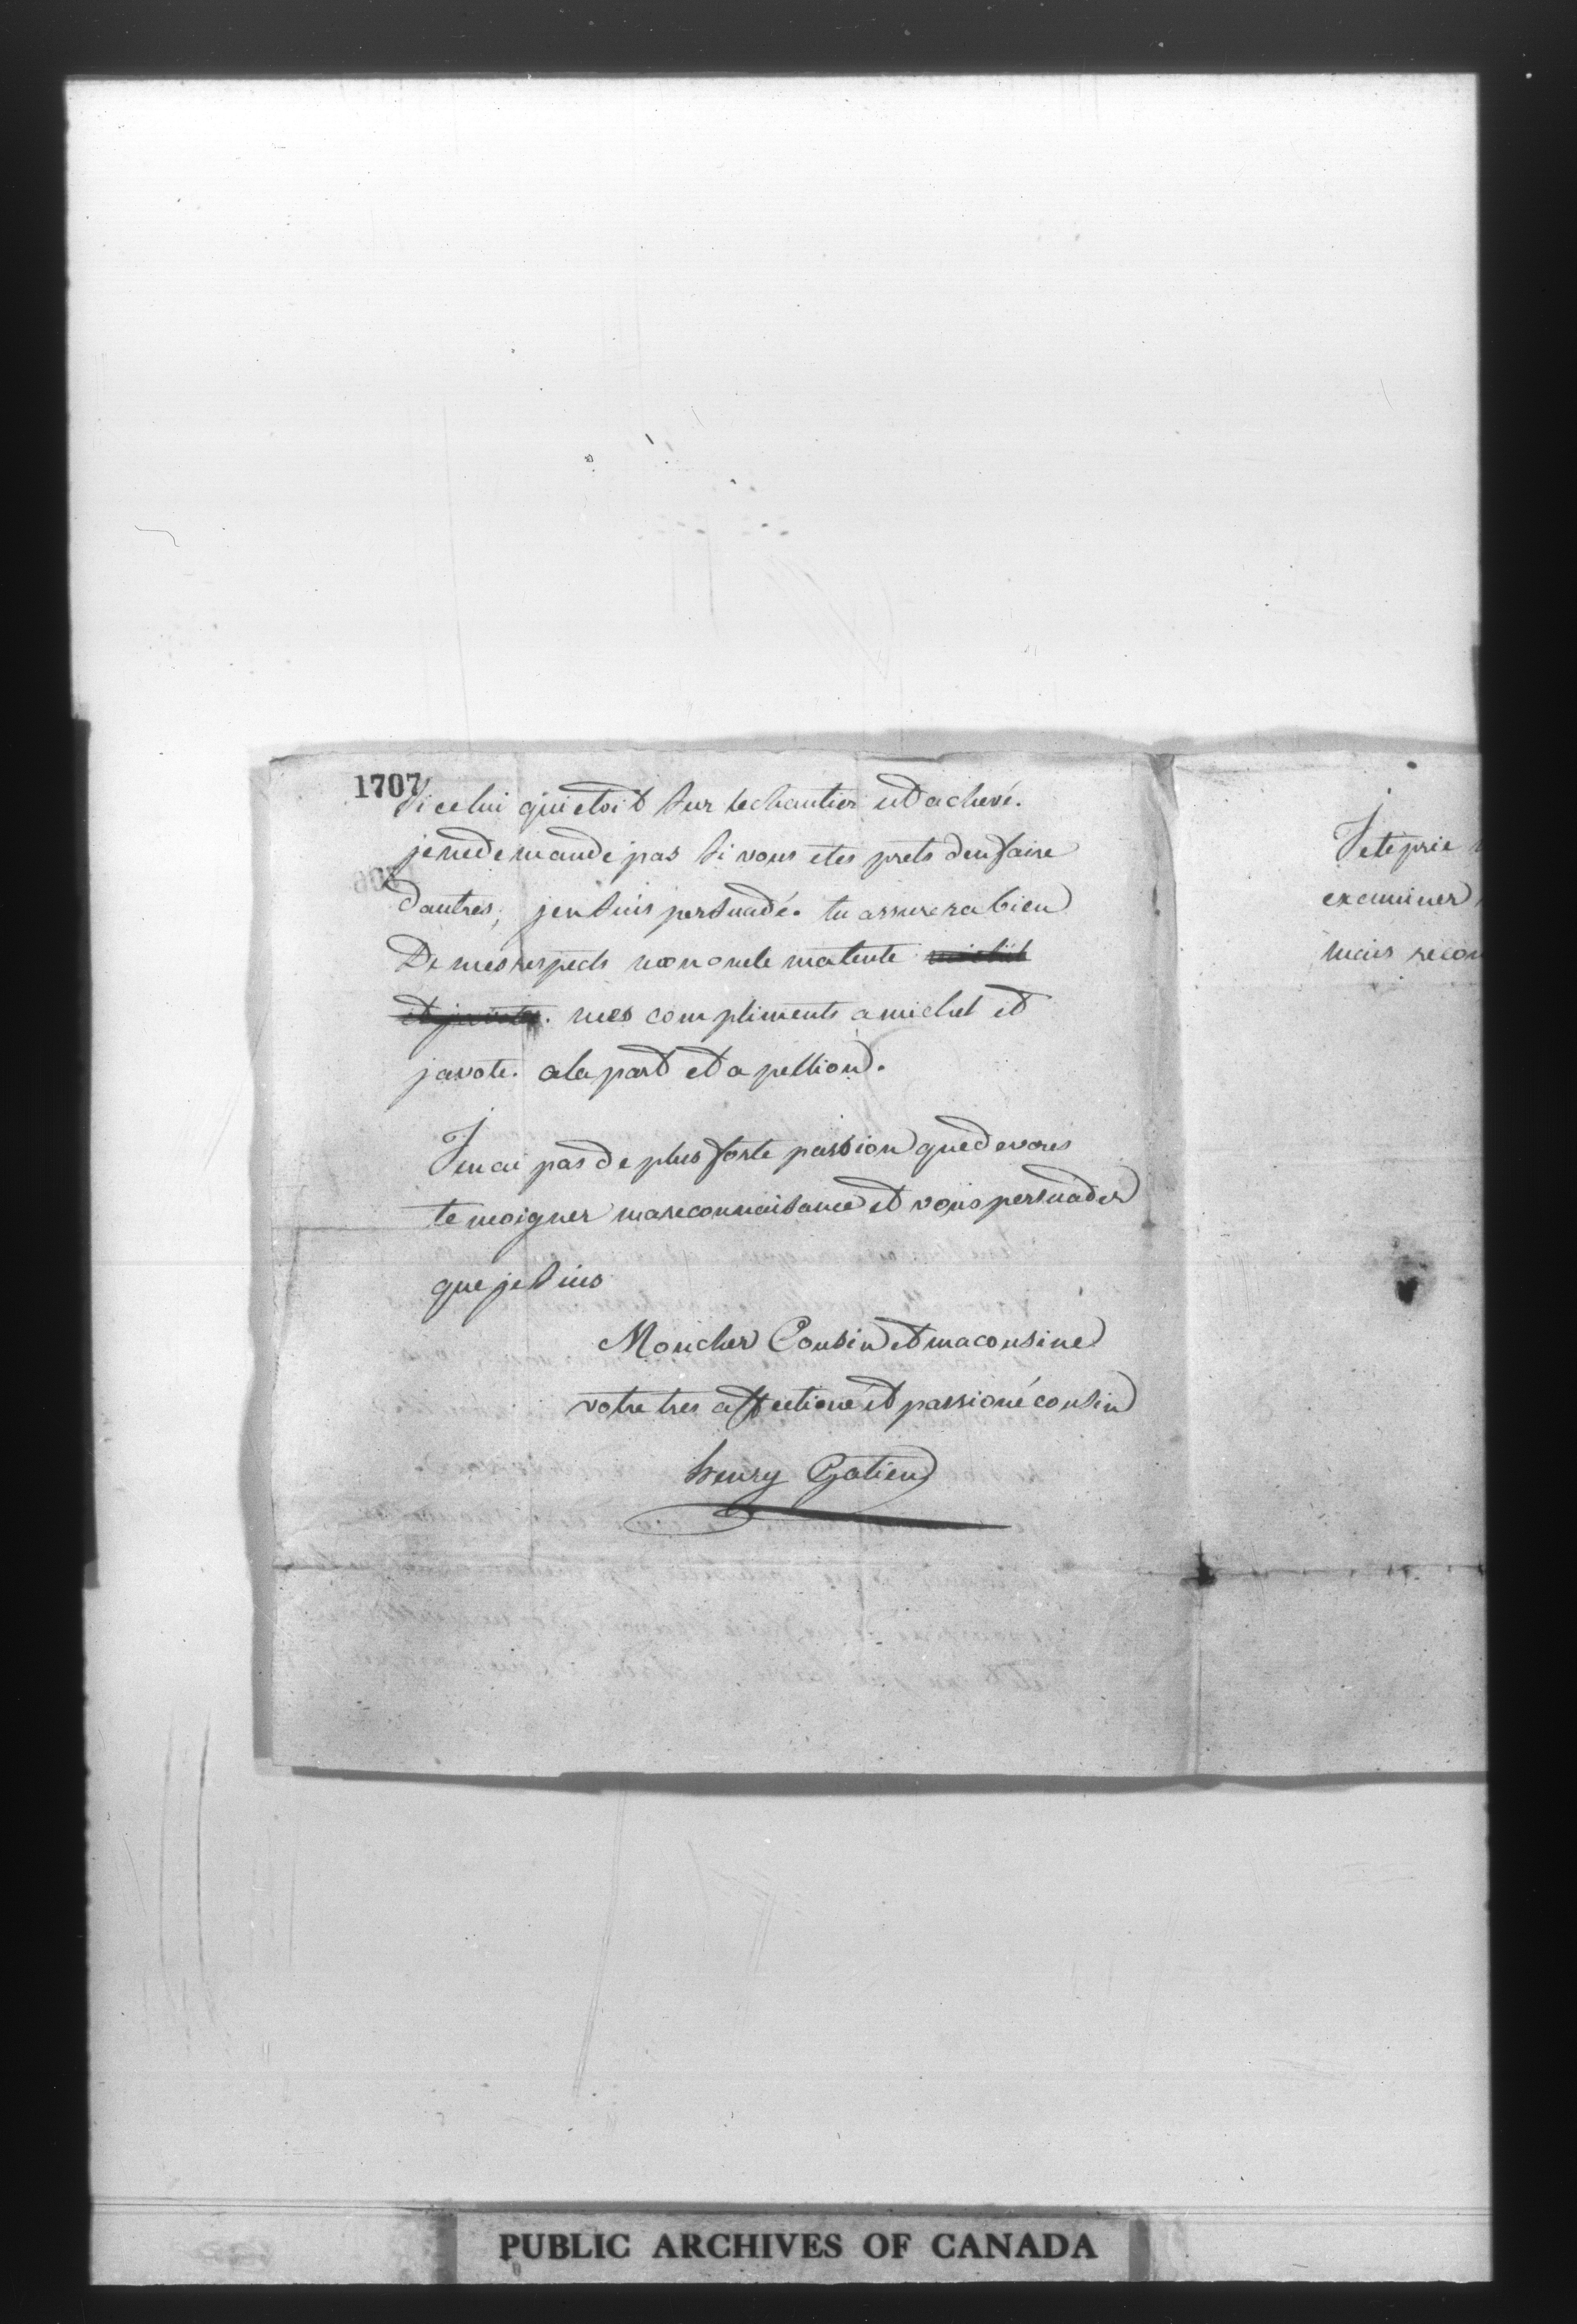 1707
Si celui qui etoit sur le chantier est achevé.
je ne demande pas si vous etes prets den faire
dautres, jen suis persuadé. tu assurera bien
De mes respects mon oncle ma tente michel
et javote. mes compliments a michel et
javote. a la part et a
Je nai pas de plus forte passion que de vous
temoigner ma reconnaissance et vous persuader
que je suis
Mon cher Cousin et ma cousine
votre tres affectioné et passioné cousin
henry Gatien
Je te prie
examiner
mais
PUBLIC ARCHIVES OF CANADA